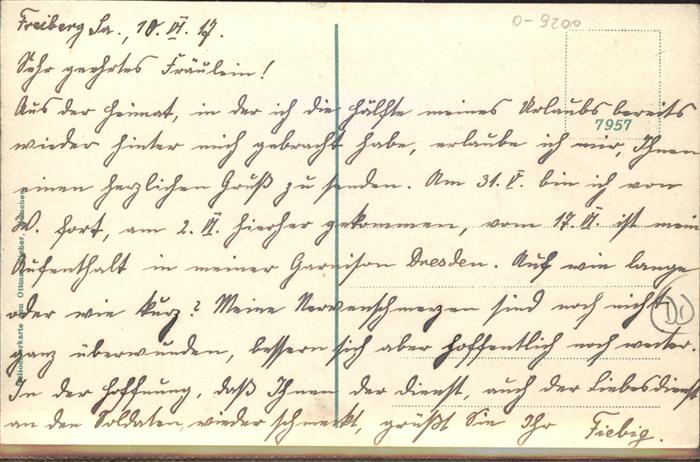 0-9200
Freiberg Sa., 10. VI. 17.
Sehr geehrtes Fräulein!
Aus der Heimat, in der ich die Hälfte meines Urlaubs bereits
7957
wieder hinter mich gebracht habe, erlaube ich mir, Ihnen
einen herzlichen Gruß zu senden. Am 31. V. bin ich von
W. fort, am 2. VI. hierher gekommen, vom 17. VI. ist mein
Aufenthalt in meiner Garnison Dresden. Auf wie lange
oder wie kurz? Meine Nervenschmerzen sind noch nicht
ganz überwunden, bessern sich aber hoffentlich noch weiter.
In der Hoffnung, daß Ihnen der Dienst, auch der Liebesdienst
an den Soldaten, wieder schmeckt, grüßt Sie Ihr Fiebig.